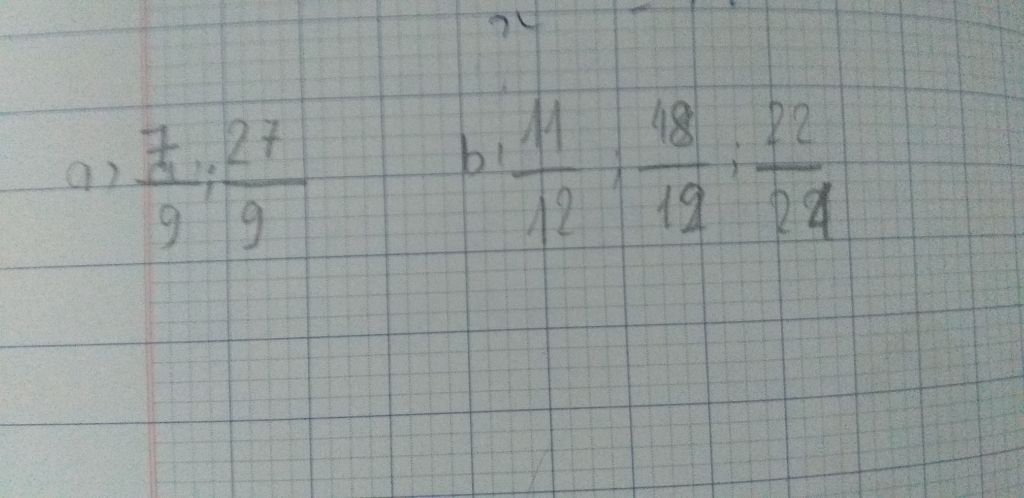 a) 7/9 ; 27/9 b) 11/12 ; 48/12 ; 22/24